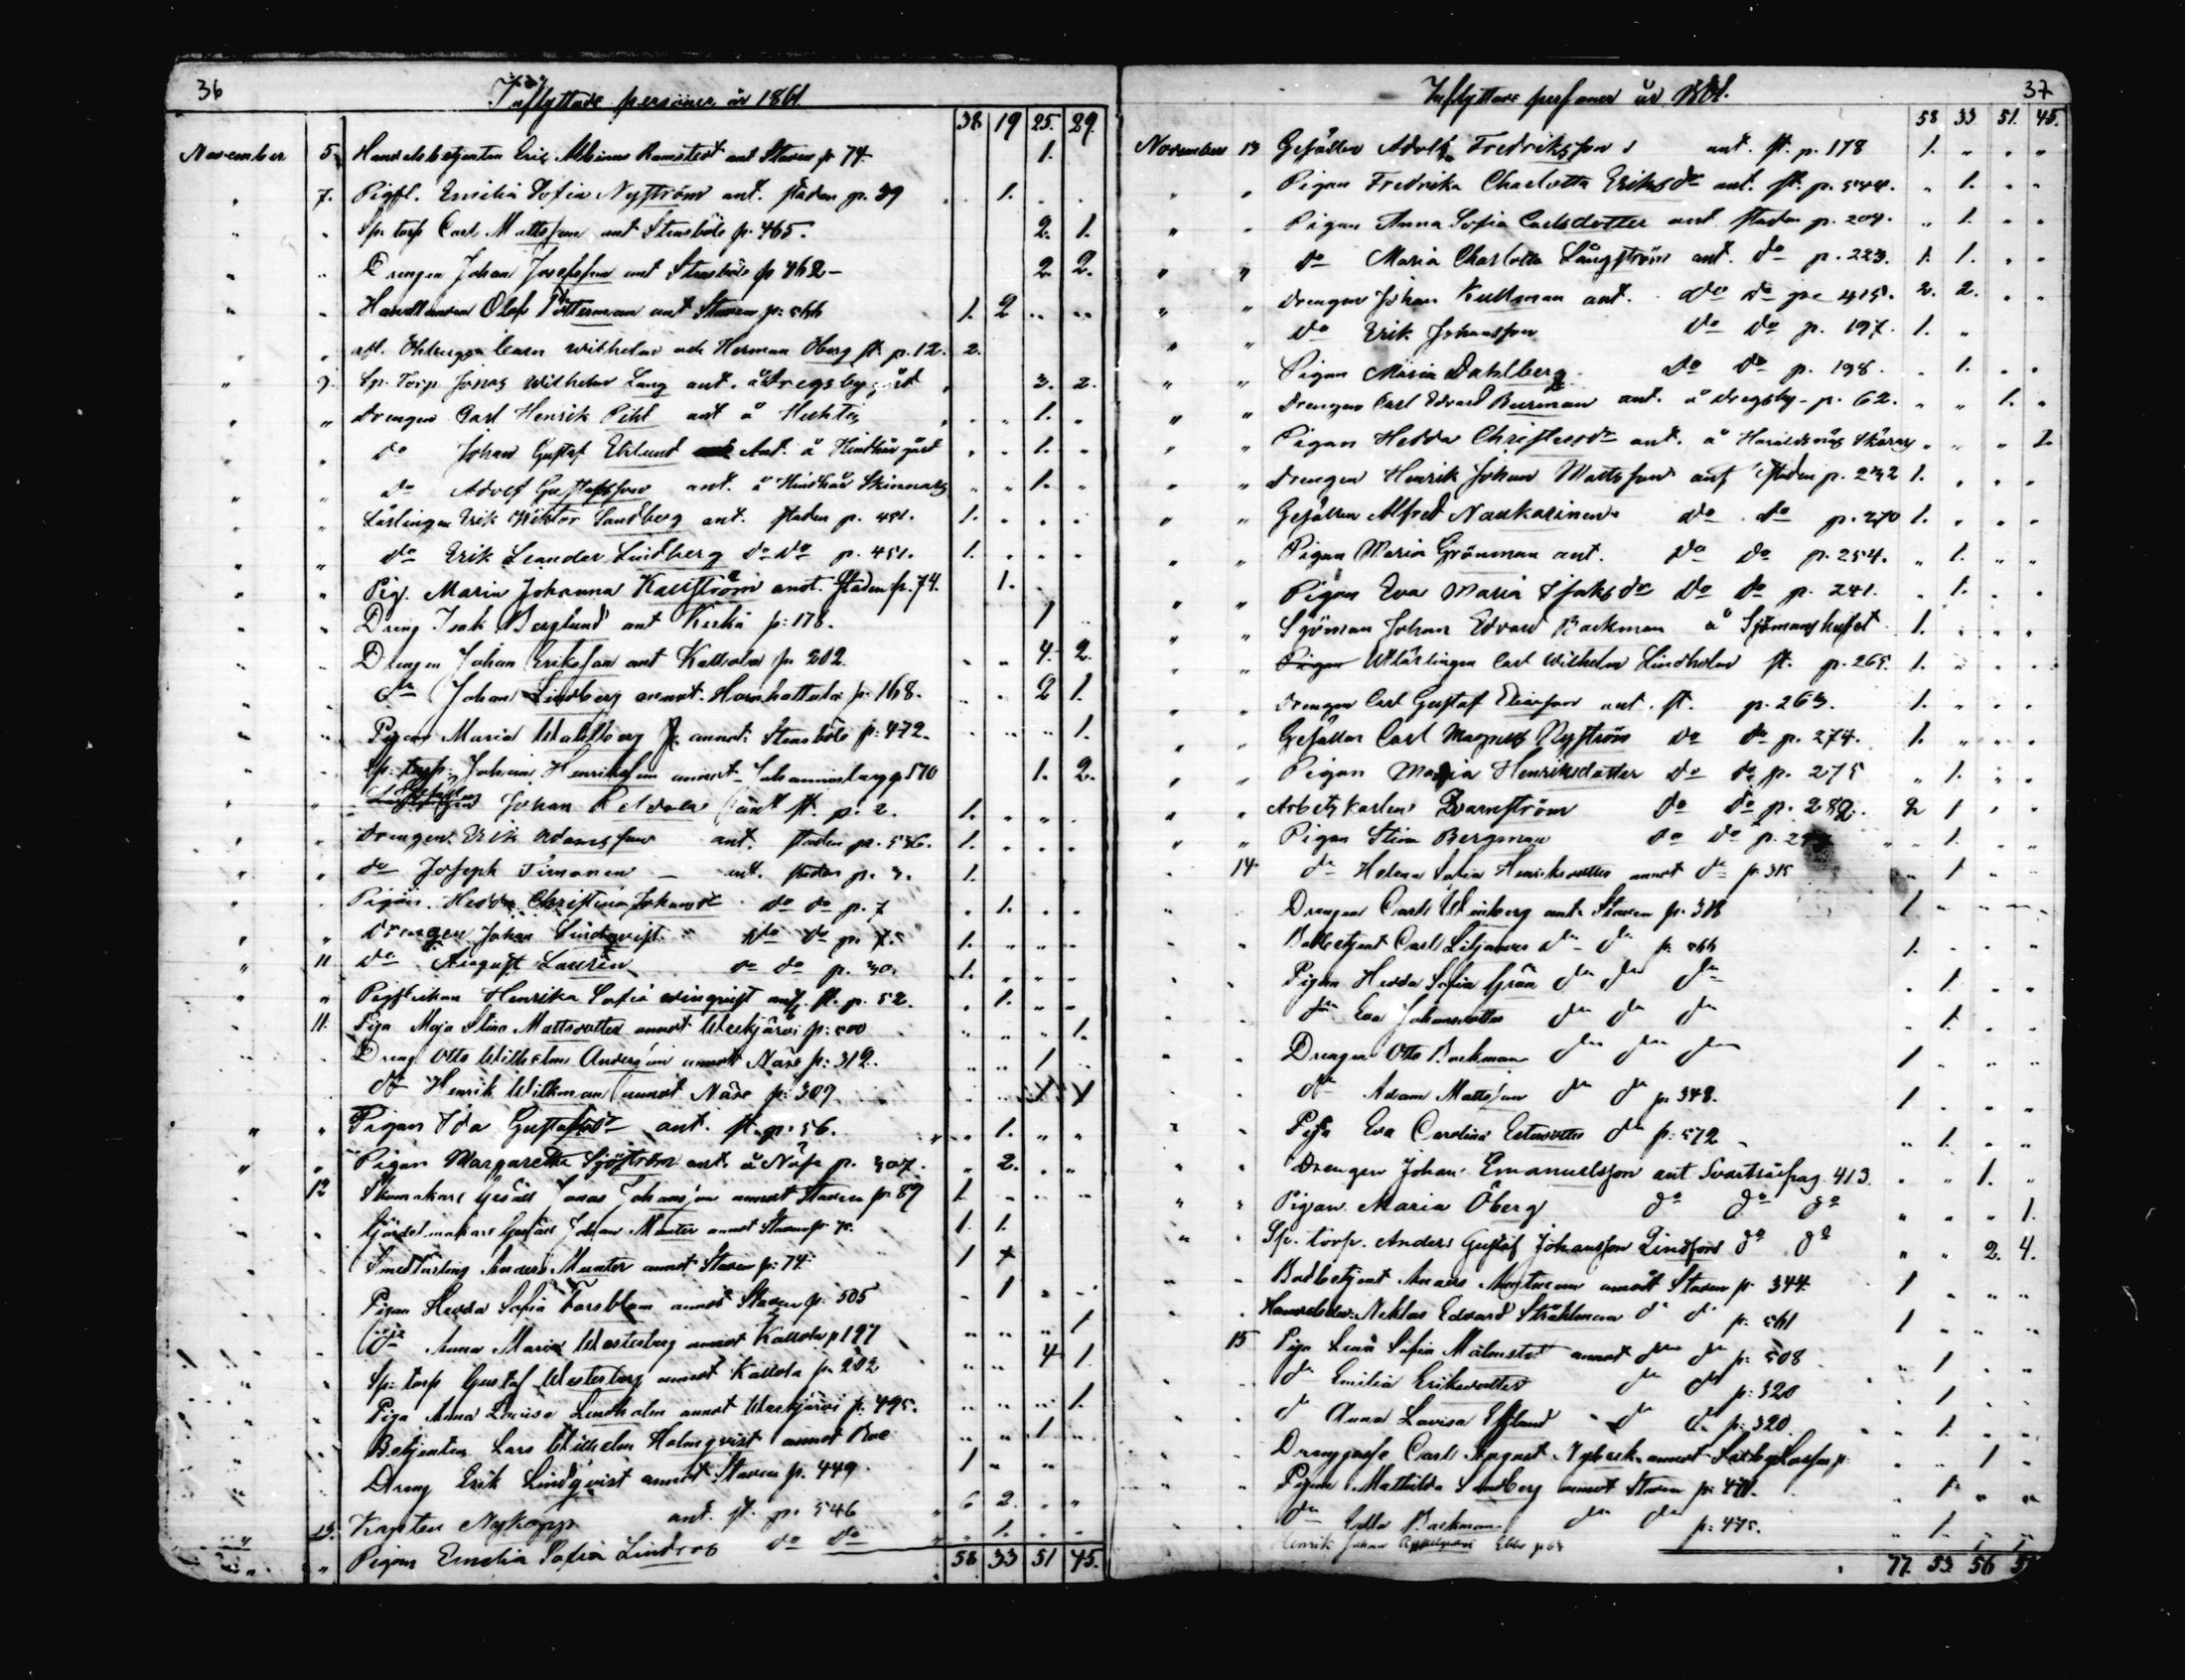 36
Inflyttade personer år 1861.
38 19 25. 29.
November 5. Handelsbetjenten Eric Albinus Ramstedt ant Staden p 74 1.
" 7. Pigfl. Emilia Sofia Nyström ant. staden p. 39 1.
" " Sp. torp Carl Mattsson ant Stensböle p. 465. 2. 1.
" " Drengen Johan Josefsson ant Stensböle p 462 – 2. 2.
" " Handlanden Olof ant Staden p: 566 1. 2 " "
" " Wilhelm och Herman Öberg st. p. 12. 2.
" 9. Sp. Torp Jonas Wilhelm Lang ant. å Dregsby gård 3. 2.
" " Drengen Carl Henrik Pihl ant å Huktis " " 1. "
" " do Johan Gustaf Eklund Ant. å Hindhår gård " " 1. "
" " do Adolf Gustafsson ant. å Hindhår Skinnars " " 1. "
" " Lärlingen Erik Wiktor Sandberg ant. staden p. 451. 1. " " "
" " do Erik Leander Lindberg do do p. 451. 1. " " "
" " Pig. Maria Johanna Kallström anot. Staden p. 74. 1.
" " Dreng Isak Berglund ant Kerko p: 178. 1
" " Drengen Johan Eriksson ant Kallola p. 202. " " 4. 2.
" " do Johan Lindberg annot. Hornhattula p. 168. " " 2 1.
" " Pigan Maria Wahlberg annot: Stensböle p: 472. " " " 1.
" " Sp: torp: Johan Henriksson annot Johannisberg p 570 1. 2.
" " Johan ant st. p. 2. 1. " " "
" " Drengen Erik Adamsson ant. staden p. 536. 1. " " "
" " do Joseph Timonen – ant. staden p. 3. 1.
" " Pigan Hedda Christina Johansdr do do p. 7 " 1. " "
" " Drengen Johan Lindqvist do do p. 7. 1. " " "
" 11 do August Laurén do do p. 30. 1. " " "
" " Henrika Sofia Winqvist ant. st. p. 52. " 1. " "
11. Piga Maja Stina Mattsdotter annot Weckjärvi p: 500 " " " 1.
" Dreng Otto Wilhelm Andersin annot Näse p: 312. " " 1
do Henrik Wilkman annot Näse p: 307
" " Pigan Ida Gustafsdr ant. st. p. 56. " 1. " "
" " Pigan Margaretha Sjöström ant. å Näse p. 307. " 2. " "
12 Skomakare Gesäll Jonas Johansson annot Staden p. 89 1 " " "
" Gördelmakare Gesäll Johan Munter annot Staden p. 1. 1.
" Smedlärling Anders Munter annot Staden p: 74. 1
Pigan Hedda Sofia Forsblom annot Staden p. 505 " 1 " "
do Anna Maria Westerberg annot Kallola p 197 " " " 1
Sp: torp Gustaf Westerberg annot Kallola p. 202 " " 4 1.
Piga Anna Lovisa Lindholm annot Weckjärvi p: 495. " " " 1.
Betjenten Lars Wilhelm Holmqvist annot Boe " " 1 "
Dreng Erik Lindqvist annot Staden p. 449. 1 " "
Karsten Nykopp ant. st. p. 546 6 2. " "
" 13. Pigan Emelia Sofia Lindros do do " 1. " "
58 33 51 45.
37
Inflyttade personer år 1861.
58 33 51. 45.
November 13 Gesällen Adolf Fredriksson ant. st. p. 178 1. " " "
" " Pigan Fredrika Charlotta Eriksdr ant. st. p. 544. " 1. " "
" " Pigan Anna Sofia Carlsdotter ant staden p. 204. " 1. " "
" " do Maria Charlotta Långström ant. do p. 223. 1. 1. " "
" " Drengen Johan Kullman ant. do do p. 415. 2. 2. " "
" " do Erik Johansson do do p. 197. 1. "
" " Pigan Maria Dahlberg do do p. 198. " 1. " "
" " Drengen Carl Edvard Burman ant. å Dregsby p. 62. " " 1. "
" " Pigan Hedda Christersdr ant. å Haraldsnäs Skärry " " " 1
" " Drengen Henrik Johan Mattsson ant staden p. 232 1. " " "
" " Gesällen Alfred Naukarinen do do p. 270 1. " " "
" " Pigan Maria Grönman ant. do do p. 254. " 1. " "
" " Pigan Eva Maria Isaksdr do do p. 241. " 1. " "
" " Sjöman Johan Edvard Backman å Sjömanshuset 1. " " "
" " Pigan Utlärlingen Carl Wilhelm Lindholm st. p. 265. 1. " " "
" " Drengen Carl Gustaf Eliasson ant. st. p. 263. 1. " " "
" " Gesällen Carl Magnus Nyström do do p. 274. 1. " " "
" " Pigan Maria Henriksdotter do do p. 275 " 1. " "
" " Arbetskarlen Qvarnström do do p. 282. 2 1 " "
" " Pigan Stina Bergman do do p. " 1. " "
14. do Helena Sofia Henriksdotter annot do p. 315 " 1 " "
" " Drengen Carl Weinberg ant. Staden p. 318 1 " " "
" " Bodbetjent Carl Liljander do do p. 566 1. " " "
" " Pigan Hedda Sofia Grån do do do " 1. " "
" " do Eva Johansdotter do do do " 1. " "
" " Drengen Otto Backman do do do 1 " " "
" " do Adam Mattsson do do p. 348. 1 " " "
" " Piga Eva Carolina do p: 572 " 1. " "
" " Drengen Johan Emanuelsson ant Svarttså pag. 413. " " 1. "
" " Pigan Maria Öberg do do do " " " 1.
" " Sp. torp. Anders Gustaf Johansson Lindfors do do " " 2. 4.
" " Bodbetjent Anders annot Staden p. 344. 1 " " "
" " Handelsbetj. Niklas Edvard Stråhlman do do p. 561 1 " " "
15 Piga Lena Sofia Malmstedt annot do do p: 508 " 1 " "
" " do Emilia Eriksdotter do do p: 320 1
" " do Anna Lovisa do do p: 320. " 1. "
" " Drenggosse Carl August annot " " 1
" " Pigan Mathilda Sandberg annot Staden p. 471. " 1. " "
" " do Backman do do p: 475. " 1. " "
Henrik Johan Ebbo p 63 1 1
77. 53 56